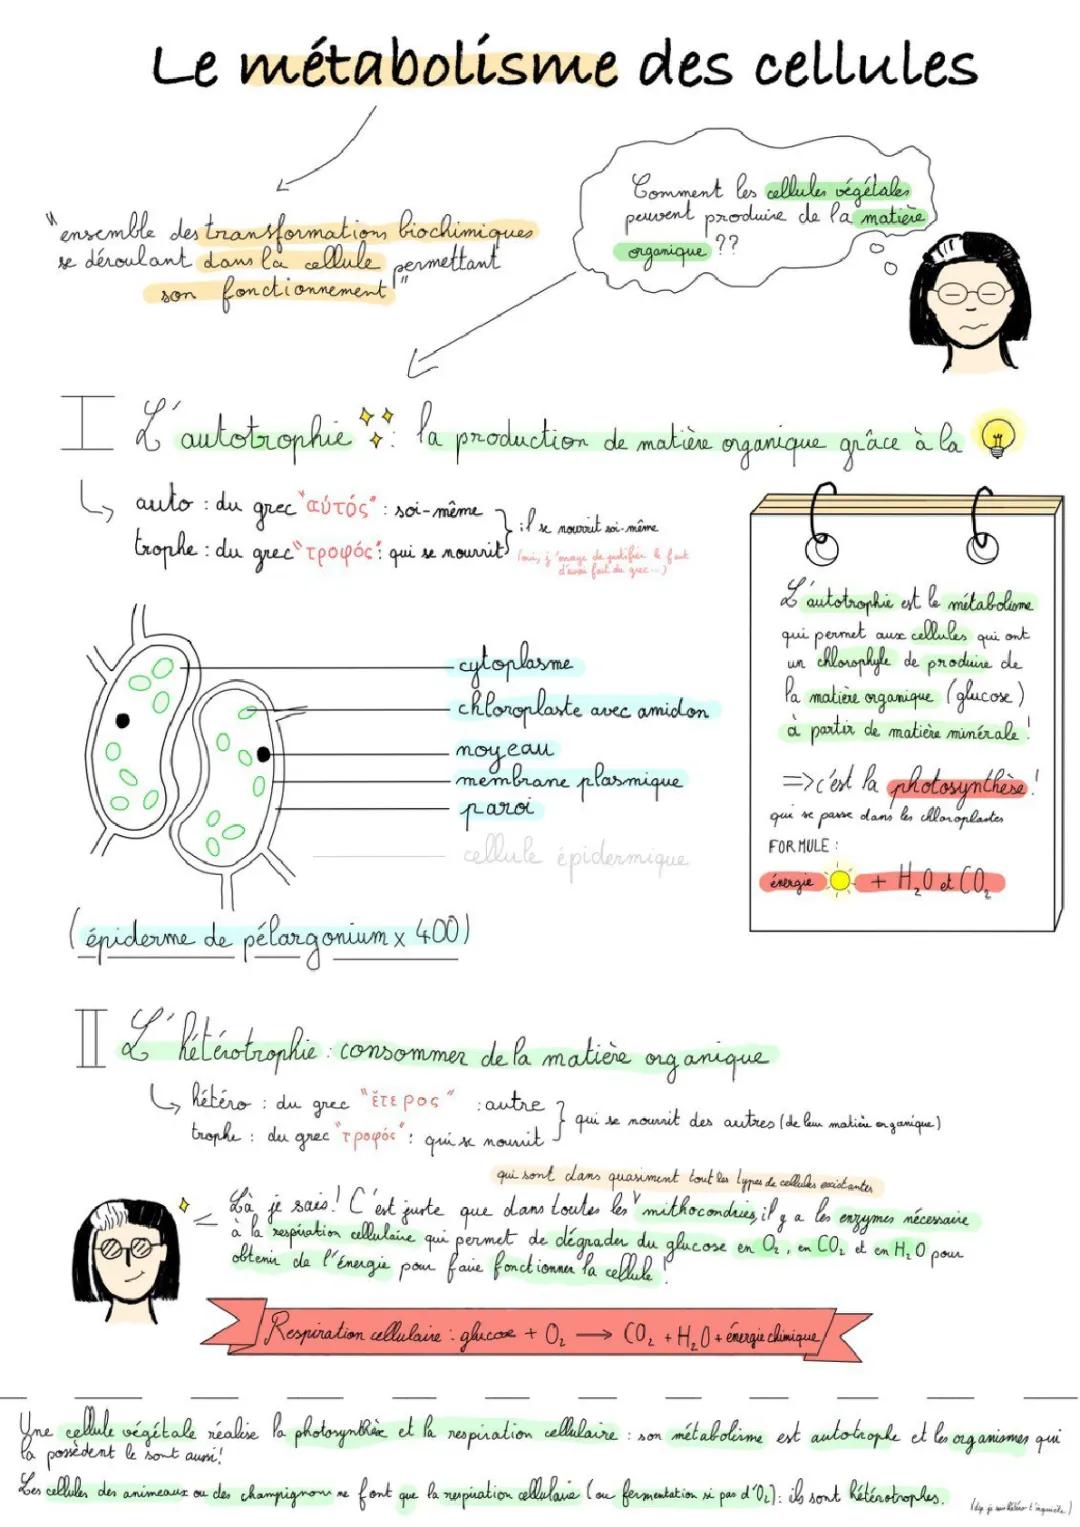 Le métabolisme des cellules
"ensemble des transformations biochimiques
se déroulant dans la cellule permettant
son fonctionnement"
Comment les cellules végétales
peuvent produire de la matière
organique ??
I L'autotrophie : la production de matière organique grâce à la
auto : du grec "αύτός" : soi-même
trophe : du grec "τροφός" : qui se nourrit
il se nourrit soi-même
(oui, j'essaye de justifier le fait
d'avoir fait du grec...)
L'autotrophie est le métabolisme
qui permet aux cellules qui ont
un chlorophyle de produire de
la matière organique (glucose)
à partir de matière minérale !
=> c'est la photosynthèse !
qui se passe dans les chloroplastes
FORMULE :
énergie + H₂O et CO₂
cytoplasme
chloroplaste avec amidon
noyeau
membrane plasmique
paroi
cellule épidermique
(épiderme de pélargonium x 400)
II L'hétérotrophie : consommer de la matière organique
hétéro : du grec "ἕτερος" : autre
trophe : du grec "τροφός" : qui se nourrit
qui se nourrit des autres (de leur matière organique)
qui sont dans quasiment tout les types de cellules existantes
Là je sais ! C'est juste que dans toutes les mithocondries, il y a les enzymes nécessaire
à la respiration cellulaire qui permet de dégrader du glucose en O₂, en CO₂ et en H₂O pour
obtenir de l'énergie pour faire fonctionner la cellule !
Respiration cellulaire : glucose + O₂ → CO₂ + H₂O + énergie chimique
Une cellule végétale réalise la photosynthèse et la respiration cellulaire : son métabolisme est autotrophe et les organismes qui
la possèdent le sont aussi !
Les cellules des animeaux ou des champignons ne font que la respiration cellulaire (ou fermentation si pas d'O₂) : ils sont hétérotrophes.